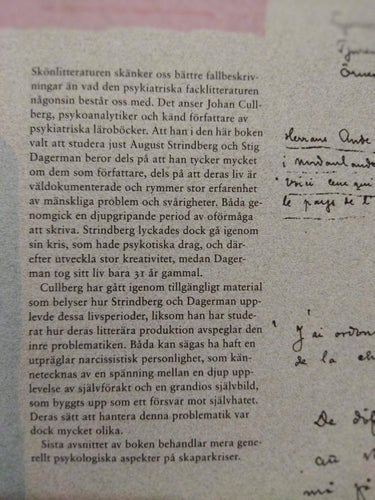 Skönlitteraturen skänker oss bättre fallbeskriv-
ningar än vad den psykiatriska facklitteraturen
någonsin består oss med. Det anser Johan Cull-
berg, psykoanalytiker och känd författare av
psykiatriska läroböcker. Att han i den här boken
valt att studera just August Strindberg och Stig
Dagerman beror dels på att han tycker mycket
om dem som författare, dels på att deras liv är
väldokumenterade och rymmer stor erfarenhet
av mänskliga problem och svårigheter. Båda ge-
nomgick en djupgripande period av oförmåga
att skriva. Strindberg lyckades dock gå igenom
sin kris, som hade psykotiska drag, och där-
efter utveckla stor kreativitet, medan Dager-
man tog sitt liv bara 31 år gammal.
Cullberg har gått igenom tillgängligt material
som belyser hur Strindberg och Dagerman upp-
levde dessa livsperioder, liksom han har stude-
rat hur deras litterära produktion avspeglar den
inre problematiken. Båda kan sägas ha haft en
utpräglar narcissistisk personlighet, som kän-
netecknas av en spänning mellan en djup upp-
levelse av självförakt och en grandios självbild,
som byggts upp som ett försvar mot självhatet.
Deras sätt att hantera denna problematik var
dock mycket olika.
Sista avsnittet av boken behandlar mera gene-
rellt psykologiska aspekter på skaparkriser.
Herrans
i
le pays de
J'ai
de la
De
au